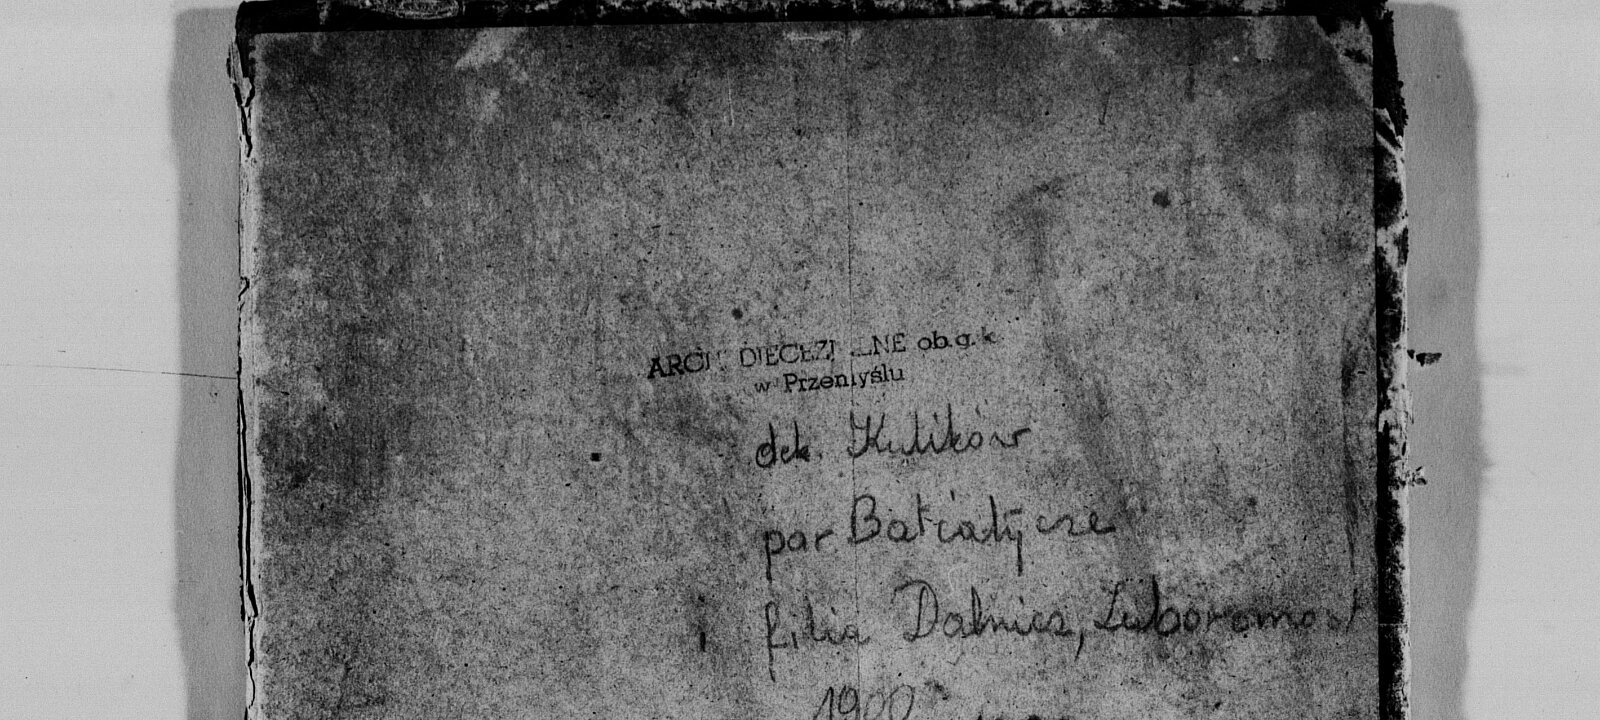 ARCH. DIECEZJALNE ob. g. k.
w Przemyślu
dek. Kulików
par Batiatycze
i filia Dalnicz, Zuboromost
1900